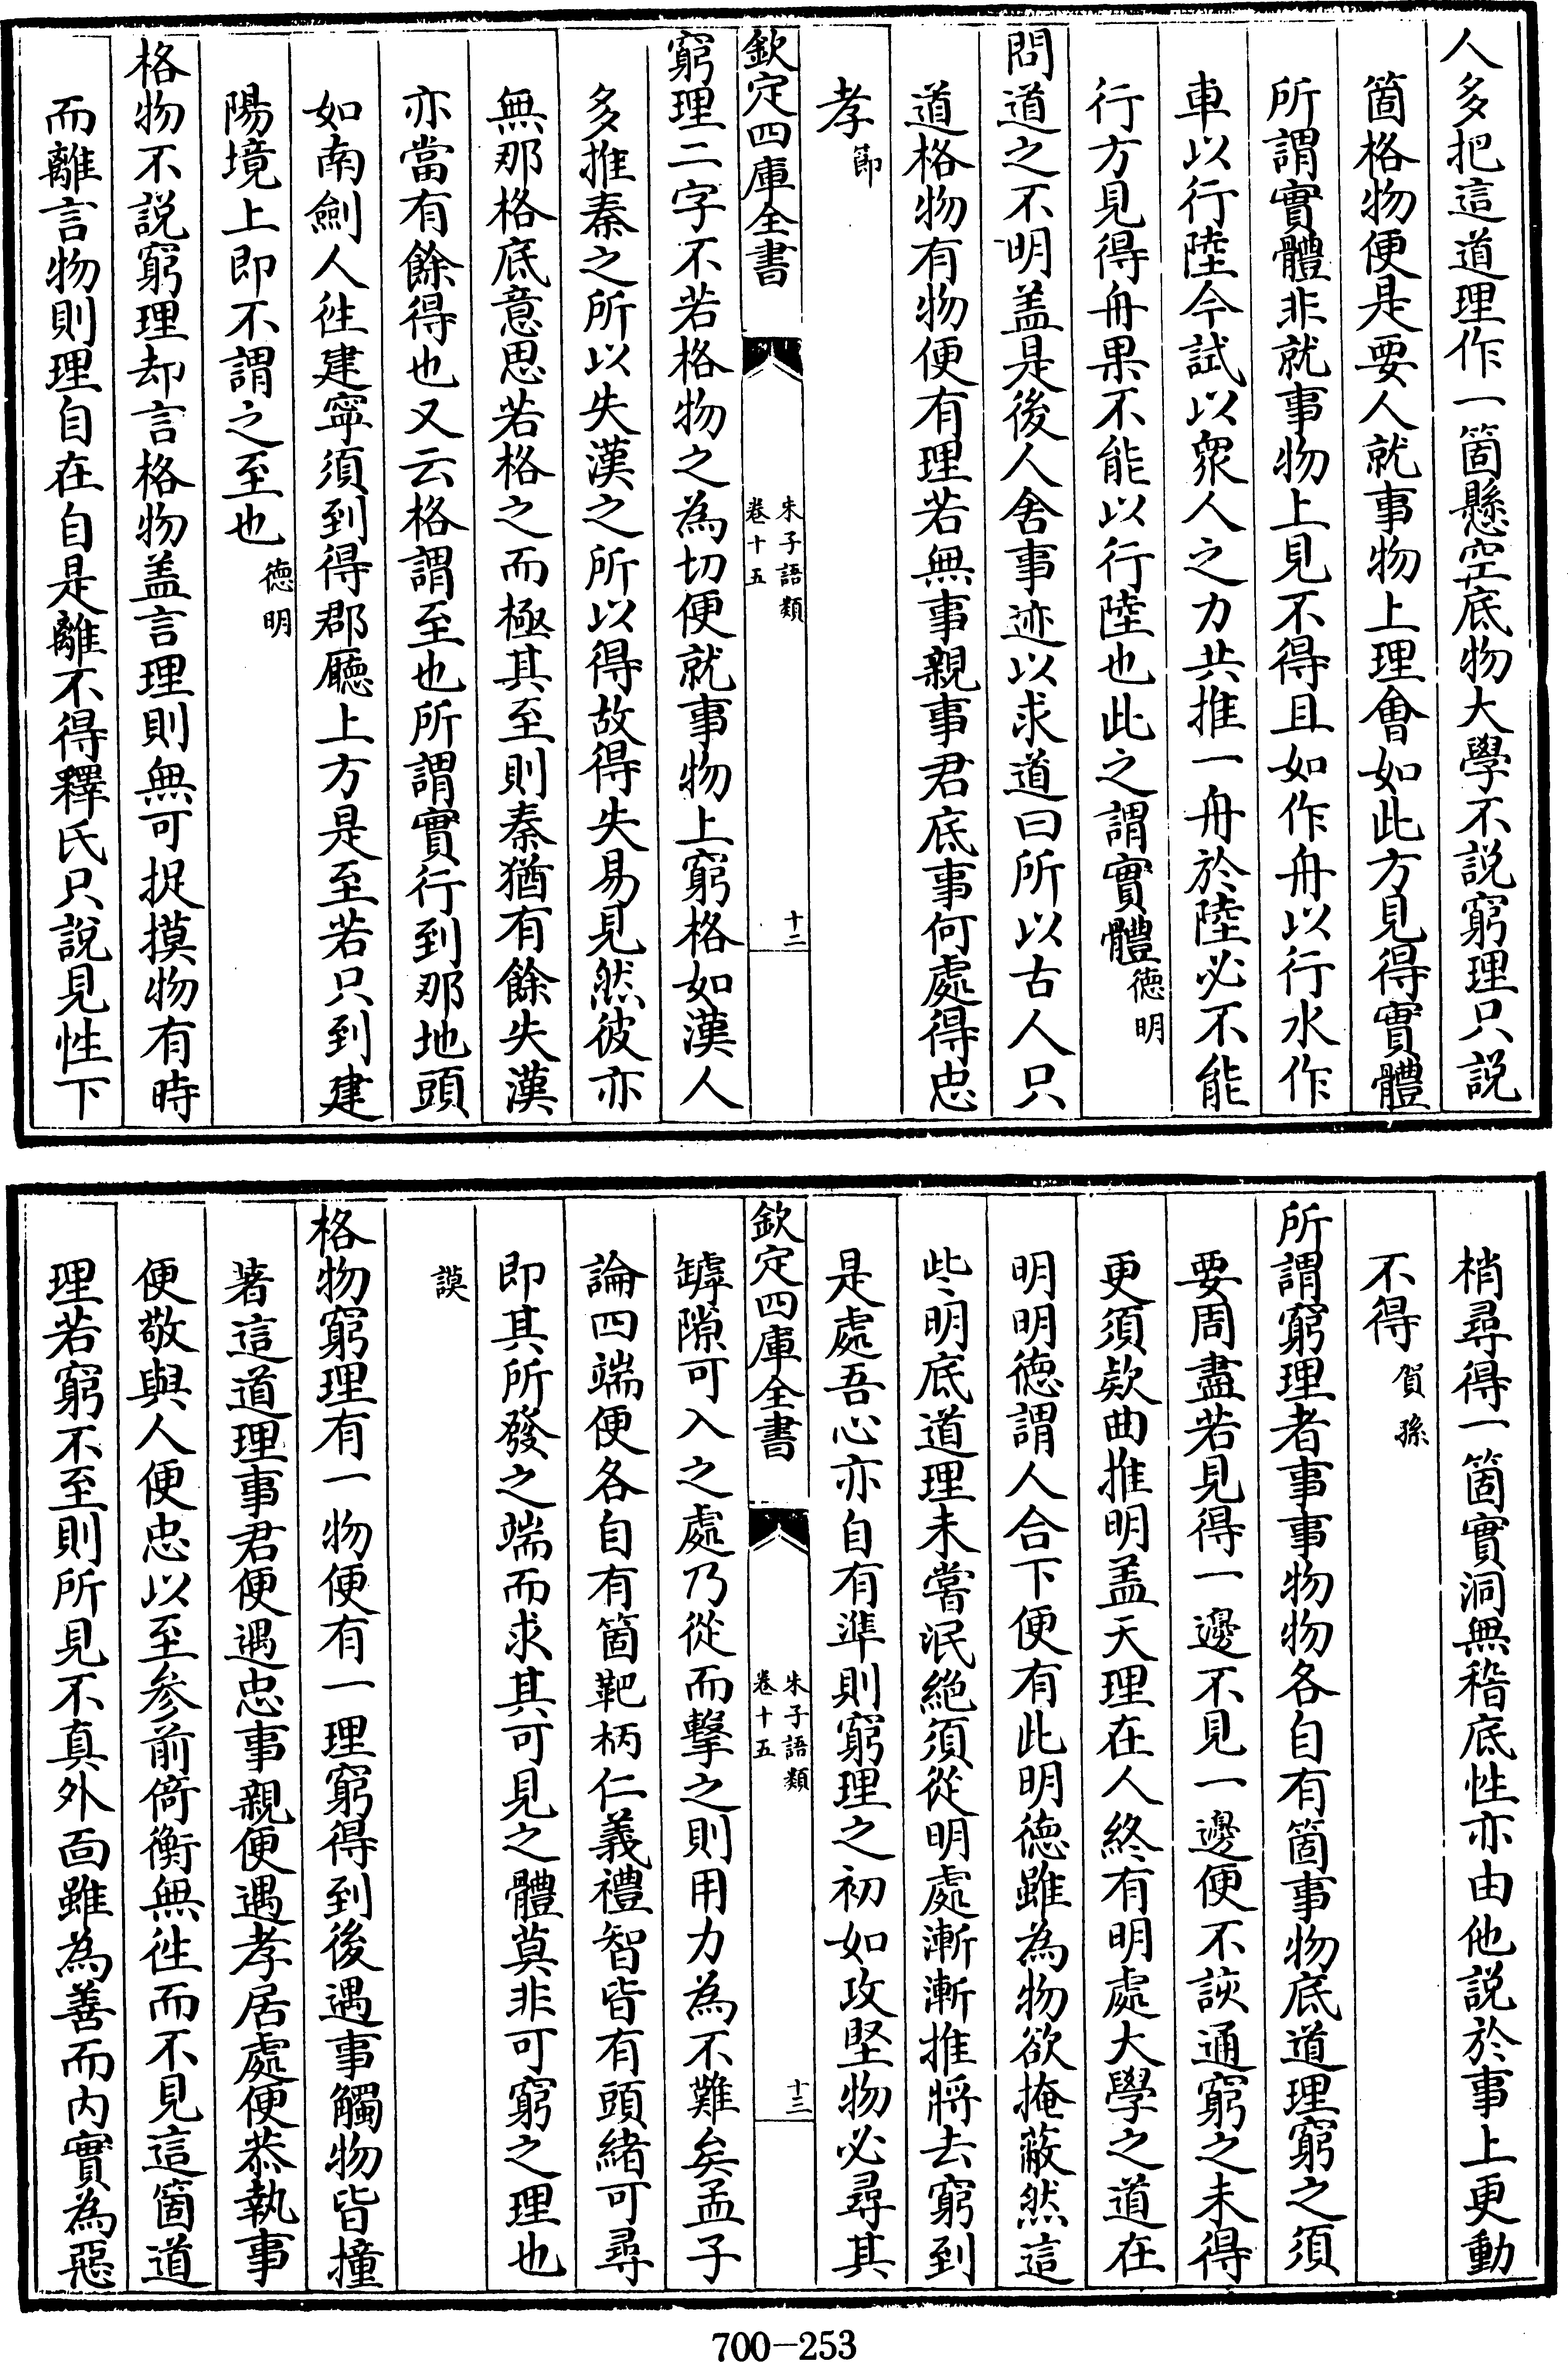 人多把這道理作一箇懸空底物大學不説窮理只説
箇格物便是要人就事物上理會如此方見得實體
所謂實體非就事物上見不得且如作舟以行水作
車以行陸今試以衆人之力共推一舟於陸必不能
行方見得舟果不能以行陸也此之謂實體德明
問道之不明盖是後人舍事迹以求道曰所以古人只
道格物有物便有理若無事親事君底事何處得忠
孝節
欽定四庫全書
朱子語類
卷十五
十二
窮理二字不若格物之為切便就事物上窮格如漢人
多推秦之所以失漢之所以得故得失易見然彼亦
無那格底意思若格之而極其至則秦猶有餘失漢
亦當有餘得也又云格謂至也所謂實行到那地頭
如南劍人徃建寧須到得郡廳上方是至若只到建
陽境上即不謂之至也德明
格物不説窮理却言格物盖言理則無可捉摸物有時
而離言物則理自在自是離不得釋氏只説見性下
梢尋得一箇實洞無稽底性亦由他説於事上更動
不得賀孫
所謂窮理者事事物物各自有箇事物底道理窮之須
要周盡若見得一邊不見一邊便不該通窮之未得
更須欵曲推明盖天理在人終有明處大學之道在
明明德謂人合下便有此明德雖為物欲掩蔽然這
些明底道理未嘗泯絶須從明處漸漸推將去窮到
是處吾心亦自有準則窮理之初如攻堅物必尋其
欽定四庫全書
朱子語類
卷十五
十三
罅隙可入之處乃從而擊之則用力為不難矣孟子
論四端便各自有箇靶柄仁義禮智皆有頭緒可尋
即其所發之端而求其可見之體莫非可窮之理也
謨
格物窮理有一物便有一理窮得到後遇事觸物皆撞
著這道理事君便遇忠事親便遇孝居處便恭執事
便敬與人便忠以至參前倚衡無徃而不見這箇道
理若窮不至則所見不真外面雖為善而内實為惡
700-253